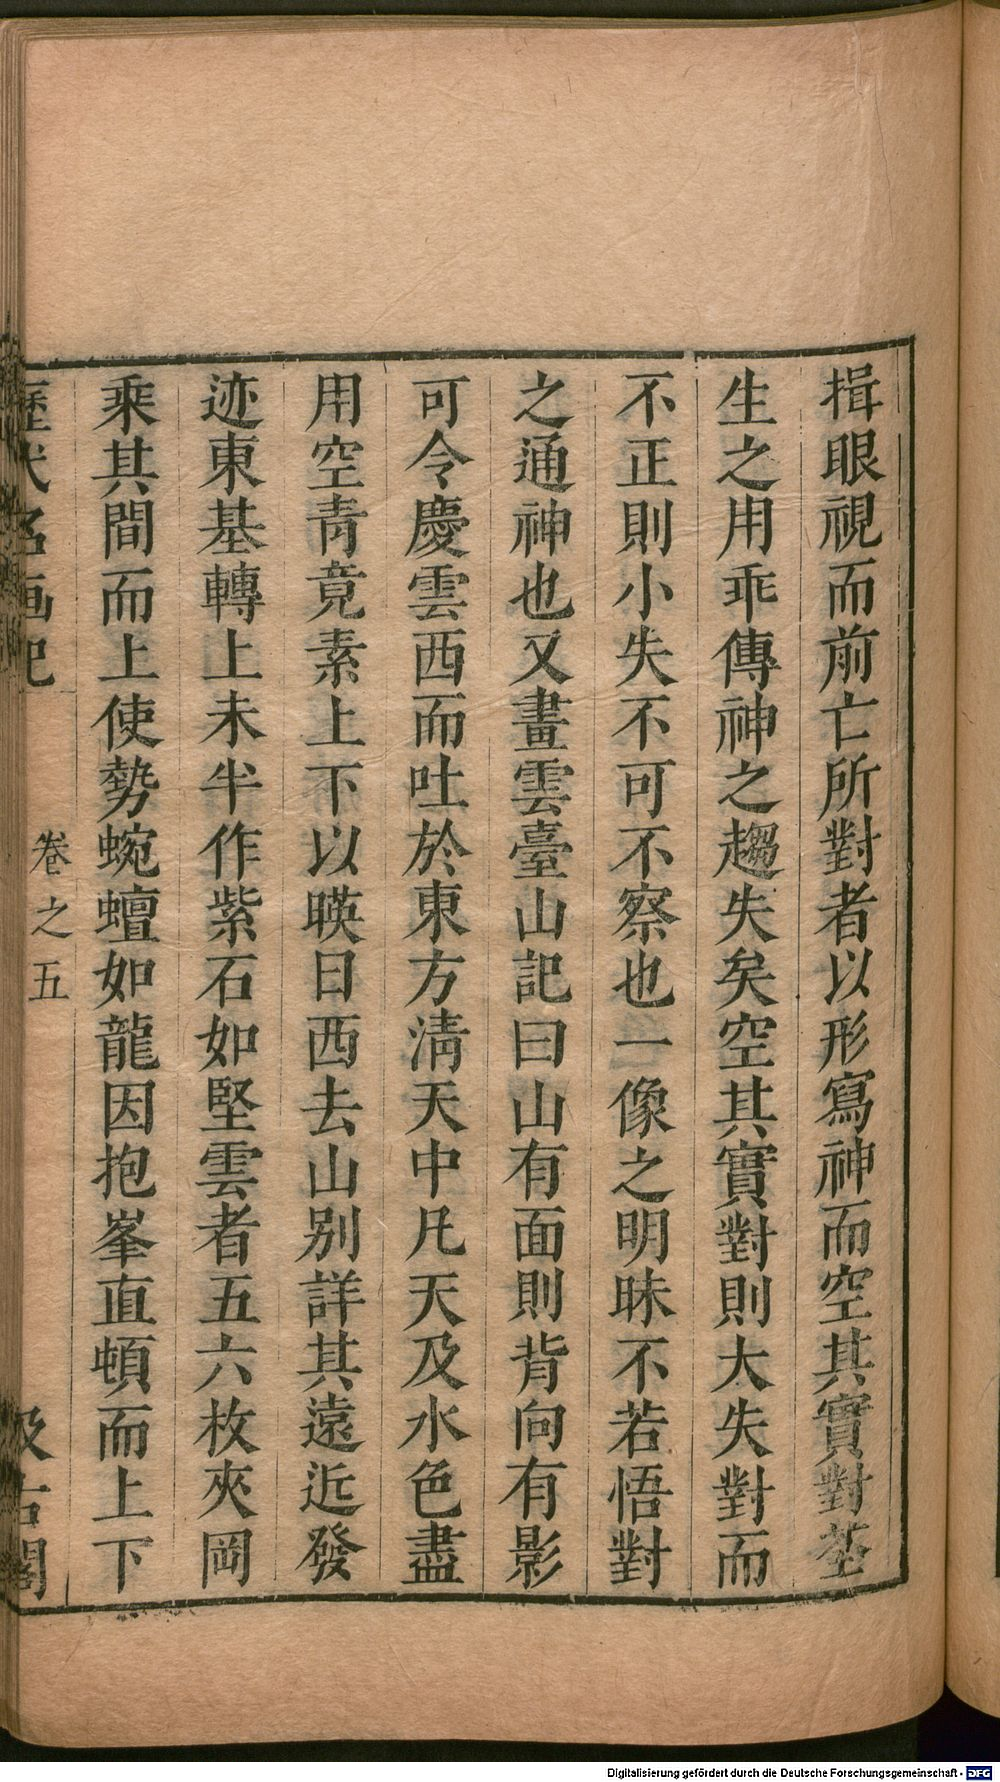 揖眼視而前亡所對者以形寫神而空其實對荃
生之用乖傳神之趨失矣空其實對則大失對而
不正則小失不可不察也一像之明昧不若悟對
之通神也又畫雲臺山記曰山有面則背向有影
可令慶雲西而吐於東方清天中凡天及水色盡
用空青竟素上下以暎日西去山别詳其遠近發
迹東基轉上未半作紫石如堅雲者五六枚夾岡
乘其間而上使勢蜿蟺如龍因抱峯直頓而上下
歷代名画記
卷之五
汲古閣
Digitalisierung gefördert durch die Deutsche Forschungsgemeinschaft - DFG